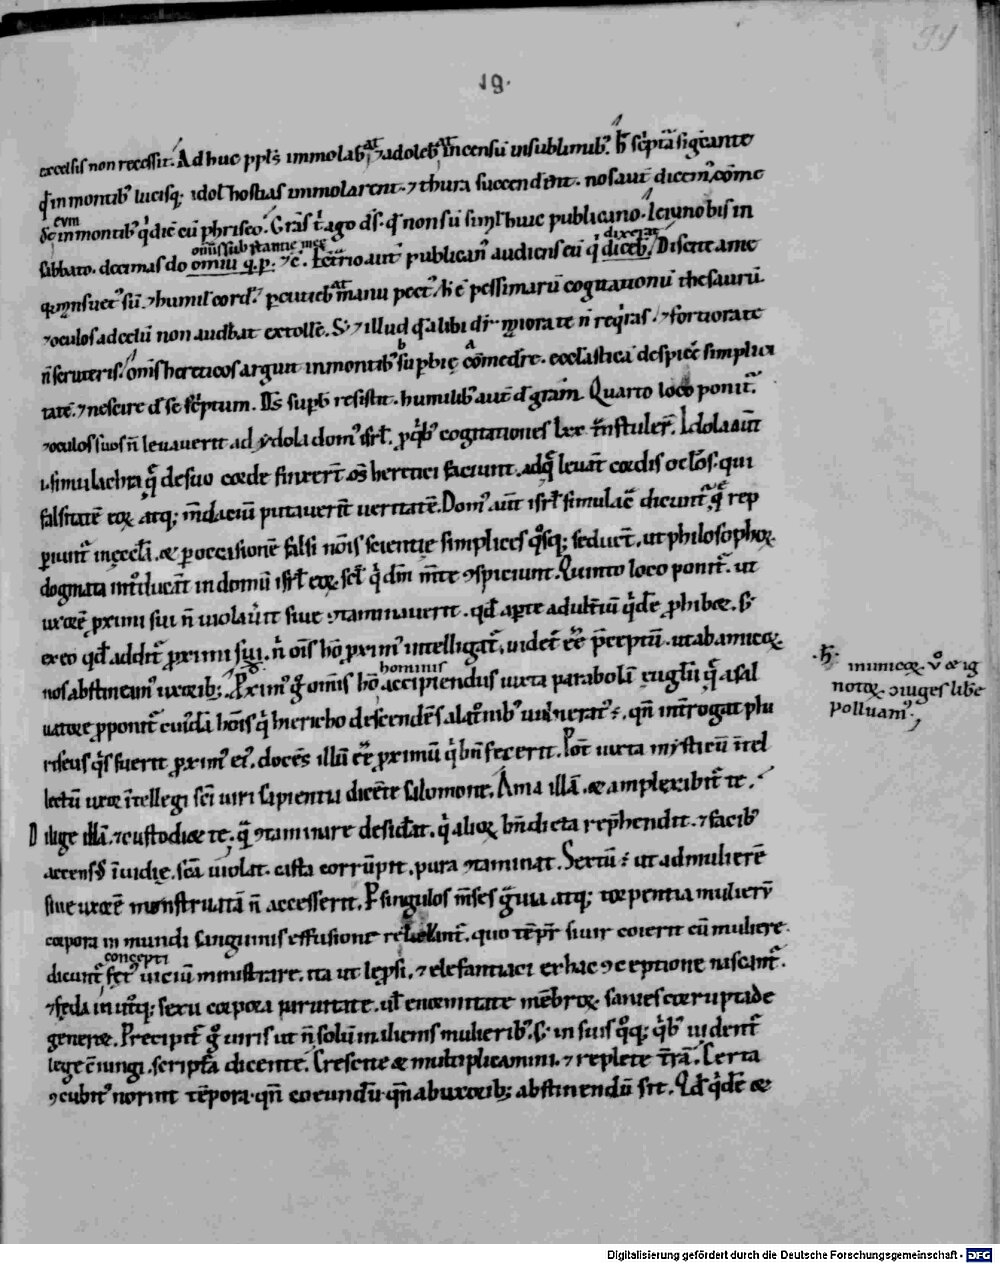 99
19.
excelsis non recessit. Adhuc ppl's immolab̄ ⁊ adoleb̄ incensū in sublimib'. h̄ scp̄ta sig̅cante
q̄ in montib' lucisq; idol' hostias immolarent. ⁊ thura succendent. nos aut̄ dicem', com̄e
in montib' q̇ dic̄ cū phariseo. Gr̄as t' ago d̄s. q̄ non sū simil' huic publicano. Ieiuno bis in
eum
sabbato. decimas do omiū q. p. ⁊c̄. publican' audiens eū q̇ diceb̄. Discite a me
omnis substantie mee
dixerat
māsuet' sū. ⁊ humil' cord̄. percutieb̄ manu pect'. h̄ ē pessimarū cogitationū thesaurū.
⁊ oculos ad celū non audebat extollē. S; ⁊ illud q̄ alibi dr̄. ne req̇ras. ⁊ fortiora te
n̄ scruteris. om̄s hereticos arguit in montib' supbię com̄edere. eccl̄astica despicē simplici
tatē. ⁊ nescire d̄ se sc̄ptum. D̄s supb̄ resistit. humilib' aut̄ d̄ gram̄. Quarto loco ponit̄.
⁊ oculos suos n̄ leuauerit ad ydola dom' isr̄l. p q̇b' cogitationes. Idola aut̄
simulachra q̄ de suo corde finxer̄t om̄s heretici faciunt. ad q̄ leuat̄ cordis oc̄los. qui
falsitatē eoꝝ atq; m̄daciū putauerit ueritatē. Dom' aut̄ isr̄l simulac̄ dicunt̄. q̄ rep
piunt̄ in eccl̄a. ⁊ p occasionē falsi nois scientię simplices q̊sq; seduct̄. ut philosophoꝝ
dogmata in domū isr̄l eoꝝ. scl̄ q̇ dm̄ m̄te ꝯspiciunt. Quinto loco ponit̄. ut
uxorē proximi sui n̄ uiolau̇it siue ꝯtaminauerit. qd̄ apte adult̄iū q̇dē prohibet. s;
ex eo qd̄ addit̄ proximi sui. n̄ om̄s hō proxim' intelligat̄, uidet̄ ēē p̄ceptū. ut ab amicoꝝ
nos abstineam' uxorib;. Proxim' g̊ omnis hō accipiendus iuxta parabolā euglii q̄ a sal
hominis
uatore pponit̄ cuidā hois q̇ hiericho descendēs a latronib' uulnerat' ē. qn̄ int̄rogat phari
seus q̇s fuerit proxim' ei'. docēs illū ēē proximū q̇ bn̄ fecerit. Pot̄ iuxta misticū intel
lectū uxor intellegi sci uiri sapientia dicēte salomone. Ama illā. ⁊ amplexabit̄ te.
Dilige illā. ⁊ custodiet te. q̄ ꝯtaminare desid̄at. q̇ alioꝝ bn̄ dicta rep̄hendit. ⁊ facib'
accens' inuidię. scā uiolat. casta corrūpit. pura ꝯtaminat. Sextū ē ut ad mulierē
siue uxorē monstruatā n̄ accesserit. P singulos m̄ses g̅uia atq; torpentia mulierū
corpora in mundi sanguinis effusione releuant̄. quo tēpr̄ si uir coierit cū muliere.
dicunt̄ fet' uiciū ministrare. ita ut lep̄si. ⁊ elefantiaci ex hac ꝯceptione nascant̄.
concepti
⁊ feda in utroq; sexu corpora paruitate. ul̄ enormitate mēbroꝝ. sanies corrupta de
generet. Precipit̄ g̊ uiris ut n̄ solū in alienis mulierib'. s; in suis q̊q; q̇b' uident̄
lege ꝯiungi. scriptā dicente. Crescite ⁊ multiplicamini. ⁊ replete t̄rā. Certa
ꝯcubit' norint tēpora. qn̄ coeundū. qn̄ ab uxorib; abstinendū sit. Qd̄ q̇dē ⁊
.h̄.
inimicoꝝ. v̊ ⁊ ig
notoꝝ. ꝯiuges libe
polluam'.
Digitalisierung gefördert durch die Deutsche Forschungsgemeinschaft - DFG